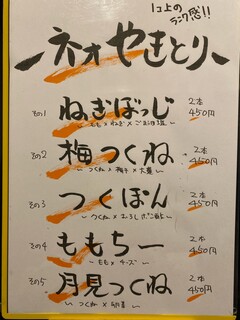 1コ上の
ランク感!!
ーネオやきとりー
その1 ねぎぼっじ 2本 450円
その2 梅つくね 2本 450円
つくね×梅干×大葉
その3 つくぽん 2本 450円
つくね×おろしポン酢
その4 ももちー 2本 450円
もも×チーズ
その5 月見つくね 2本 450円
つくね×卵黄